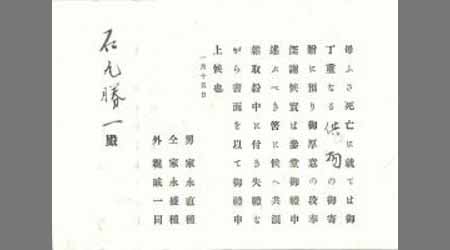 母ふさ死亡に就ては御
丁重なる供物の御寄
贈に預り御厚意の段奉
深謝候實は參堂御禮申
述ぶべき筈に候へ共混
雜取紛中に付き失禮な
がら書面を以て御禮申
上候也
一月十五日
男家永直種
仝家永盛種
外親戚一同
石丸勝一殿